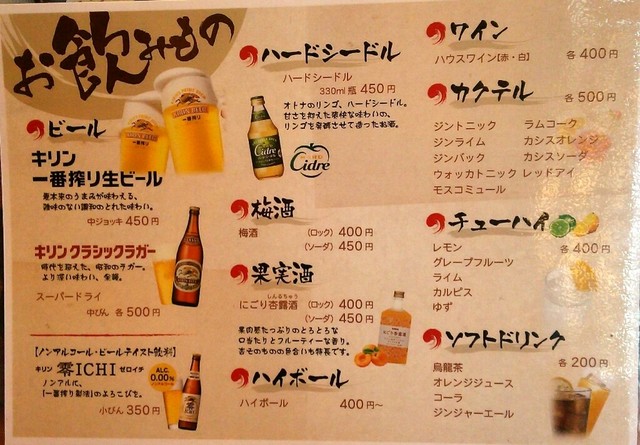 お飲みもの
ビール
キリン
一番搾り生ビール
麦本来のうまみが味わえる、
雑味のない調和のとれた味わい。
中ジョッキ 450円
キリン クラシックラガー
時代を超えた、昭和のラガー。
より深い味わい、全開。
スーパードライ
中びん 各500円
【ノンアルコール・ビールテイスト飲料】
キリン 零ICHI ゼロイチ
ノンアルに、
「一番搾り製法」のよろこびを。
ALC.
0.00%
小びん 350円
ハードシードル
ハードシードル
330ml瓶 450円
オトナのリンゴ、ハードシードル。
甘さを抑えた爽快な味わいの、
リンゴを発酵させて造ったお酒。
Cidre
Cidre
梅酒
梅酒 (ロック) 400円
(ソーダ) 450円
果実酒
しんるちゅう
にごり杏露酒 (ロック) 400円
(ソーダ) 450円
果肉感たっぷりのとろとろな
口当たりとフルーティーな香り。
杏そのものの色合いも特長です。
ハイボール
ハイボール 400円〜
ワイン
ハウスワイン[赤・白] 各400円
カクテル
各500円
ジントニック ラムコーク
ジンライム カシスオレンジ
ジンバック カシスソーダ
ウォッカトニック レッドアイ
モスコミュール
チューハイ
各400円
レモン
グレープフルーツ
ライム
カルピス
ゆず
ソフトドリンク
各200円
烏龍茶
オレンジジュース
コーラ
ジンジャーエール